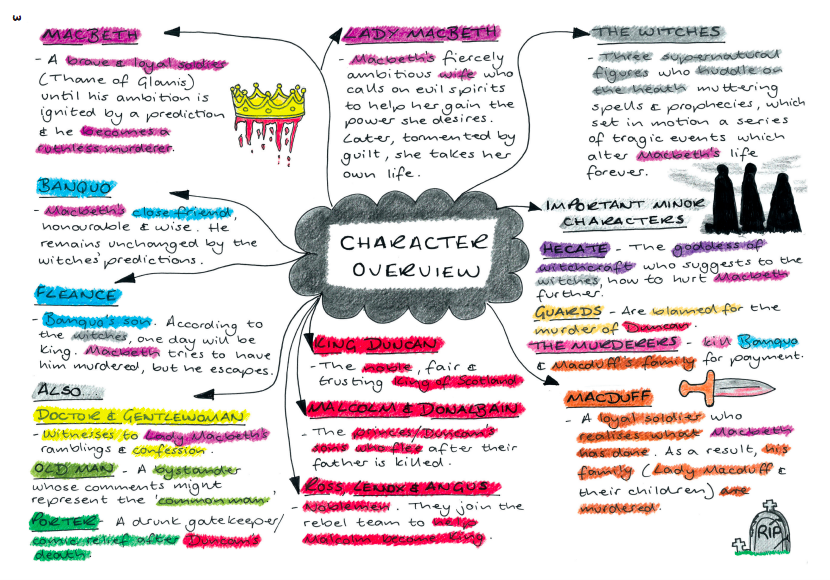 w
MACBETH
- A brave & loyal soldier
(Thame of Glamis)
until his ambition is
ignited by a prediction
& he becomes a
ruthless murderer.
LADY MACBETH
- Macbeth's fiercely
ambitious wife who
calls on evil spirits
to help her gain the
power she desires.
Later, tormented by
guilt, she takes her
own life.
THE WITCHES
- Three supernatural
figures who huddle on
the heath muttering
spells & prophecies, which
set in motion a series
of tragic events which
alter Macbeth's life
forever.
BANQUO
- Macbeth's close friend,
honourable & wise. He
remains unchanged by the
witches' predictions.
CHARACTER
OVERVIEW
IMPORTANT MINOR
CHARACTERS
HECATE - The goddess of
witchcraft who suggests to the
witches, how to hurt Macbeth
further.
GUARDS - Are blamed for the
murder of Duncan.
THE MURDERERS - kill Banquo
& Macduff's family for payment.
FLEANCE
- Banquo's son. According to
the witches, one day will be
king. Macbeth tries to have
him murdered, but he escapes.
KING DUNCAN
- The noble, fair &
trusting King of Scotland
MALCOLM & DONALBAIN
- The princes/Duncan's
sons who flee after their
father is killed.
ROSS LENOX & ANGUS
- Noblemen. They join the
rebel team to help
Malcolm become King.
MACDUFF
- A loyal soldier who
realises what Macbeth
has done. As a result, his
family (Lady Macduff &
their children) are
murdered.
RIP
ALSO
DOCTOR & GENTLEWOMAN
- Witnesses to Lady Macbeth's
ramblings & confession.
OLD MAN - A bystander
whose comments might
represent the 'common man'
PORTER - A drunk gatekeeper/
comic relief after Duncan's
death.